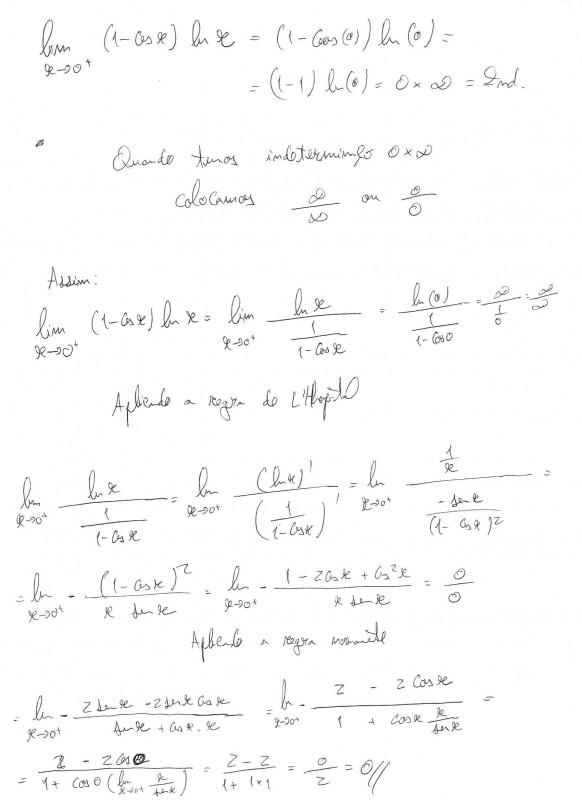 lim x→0⁺ (1-cos x) ln x = (1-cos(0)) ln(0) =
= (1-1) ln(0) = 0 × ∞ = Ind.
Quando temos indeterminação 0×∞
colocamos ∞/∞ ou 0/0
Assim:
lim x→0⁺ (1-cos x) ln x = lim x→0⁺ ln x / (1/(1-cos x)) = ln(0) / (1/(1-cos 0)) = ∞/(1/0) = ∞/∞
Aplicando a regra de L'Hopital
lim x→0⁺ ln x / (1/(1-cos x)) = lim x→0⁺ (ln x)' / (1/(1-cos x))' = lim x→0⁺ (1/x) / (-sen x/(1-cos x)²) =
= lim x→0⁺ - (1-cos x)² / (x sen x) = lim x→0⁺ - (1-2cos x + cos²x) / (x sen x) = 0/0
Aplicando a regra novamente
= lim x→0⁺ - (2sen x - 2sen x cos x) / (sen x + cos x · x) = lim x→0⁺ - (2 - 2cos x) / (1 + cos x x/sen x) =
= (2 - 2cos 0) / (1 + cos 0 (lim x→0⁺ x/sen x)) = (2-2) / (1+1×1) = 0/2 = 0//